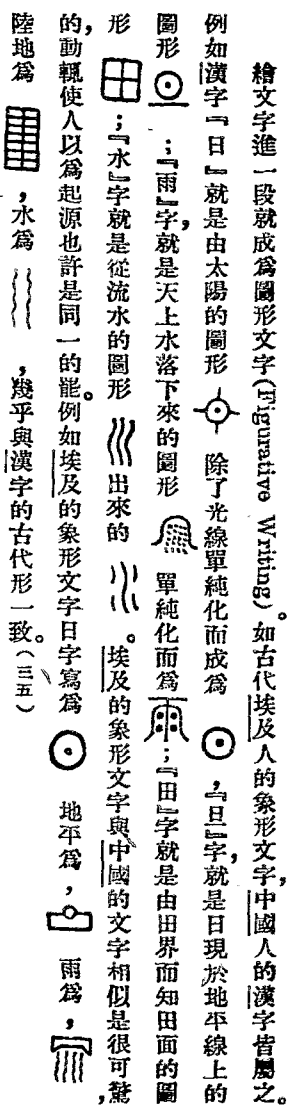 繪文字進一段就成爲圖形文字(Figurative Writing)。如古代埃及人的象形文字,中國人的漢字皆屬之。
例如漢字『日』就是由太陽的圖形 除了光線單純化而成爲 ,『旦』字,就是日現於地平線上的
圖形 ;『雨』字,就是天上水落下來的圖形 單純化而爲 ;『田』字就是由田界而知田面的圖
形 ;『水』字就是從流水的圖形 出來的 。埃及的象形文字與中國的文字相似是很可驚
的,動輒使人以爲起源也許是同一的罷。例如埃及的象形文字日字寫爲 地平爲, 雨爲,
陸地爲 ,水爲 ,幾乎與漢字的古代形一致。(三五)